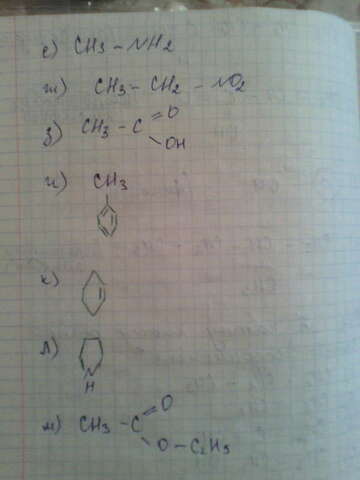 е) CH3 - NH2
ж) CH3 - CH2 - NO2
з) CH3 - C = O
- OH
и) CH3
к)
л)
N
H
м) CH3 - C = O
- O - C2H5